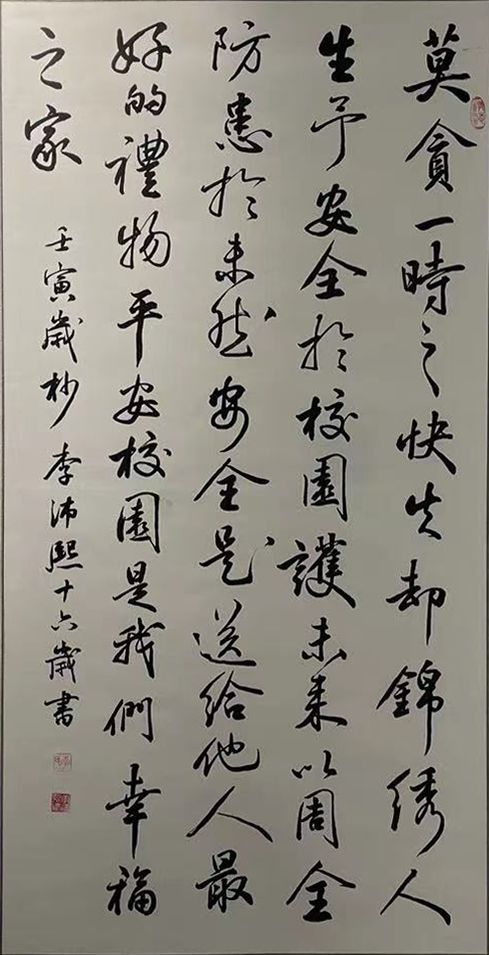 莫貪一時之快失却錦绣人
生予安全於校園護未来以周全
防患於未然安全是送给他人最
好的禮物平安校園是我們幸福
之家
壬寅歲杪李沛熙十六歲書